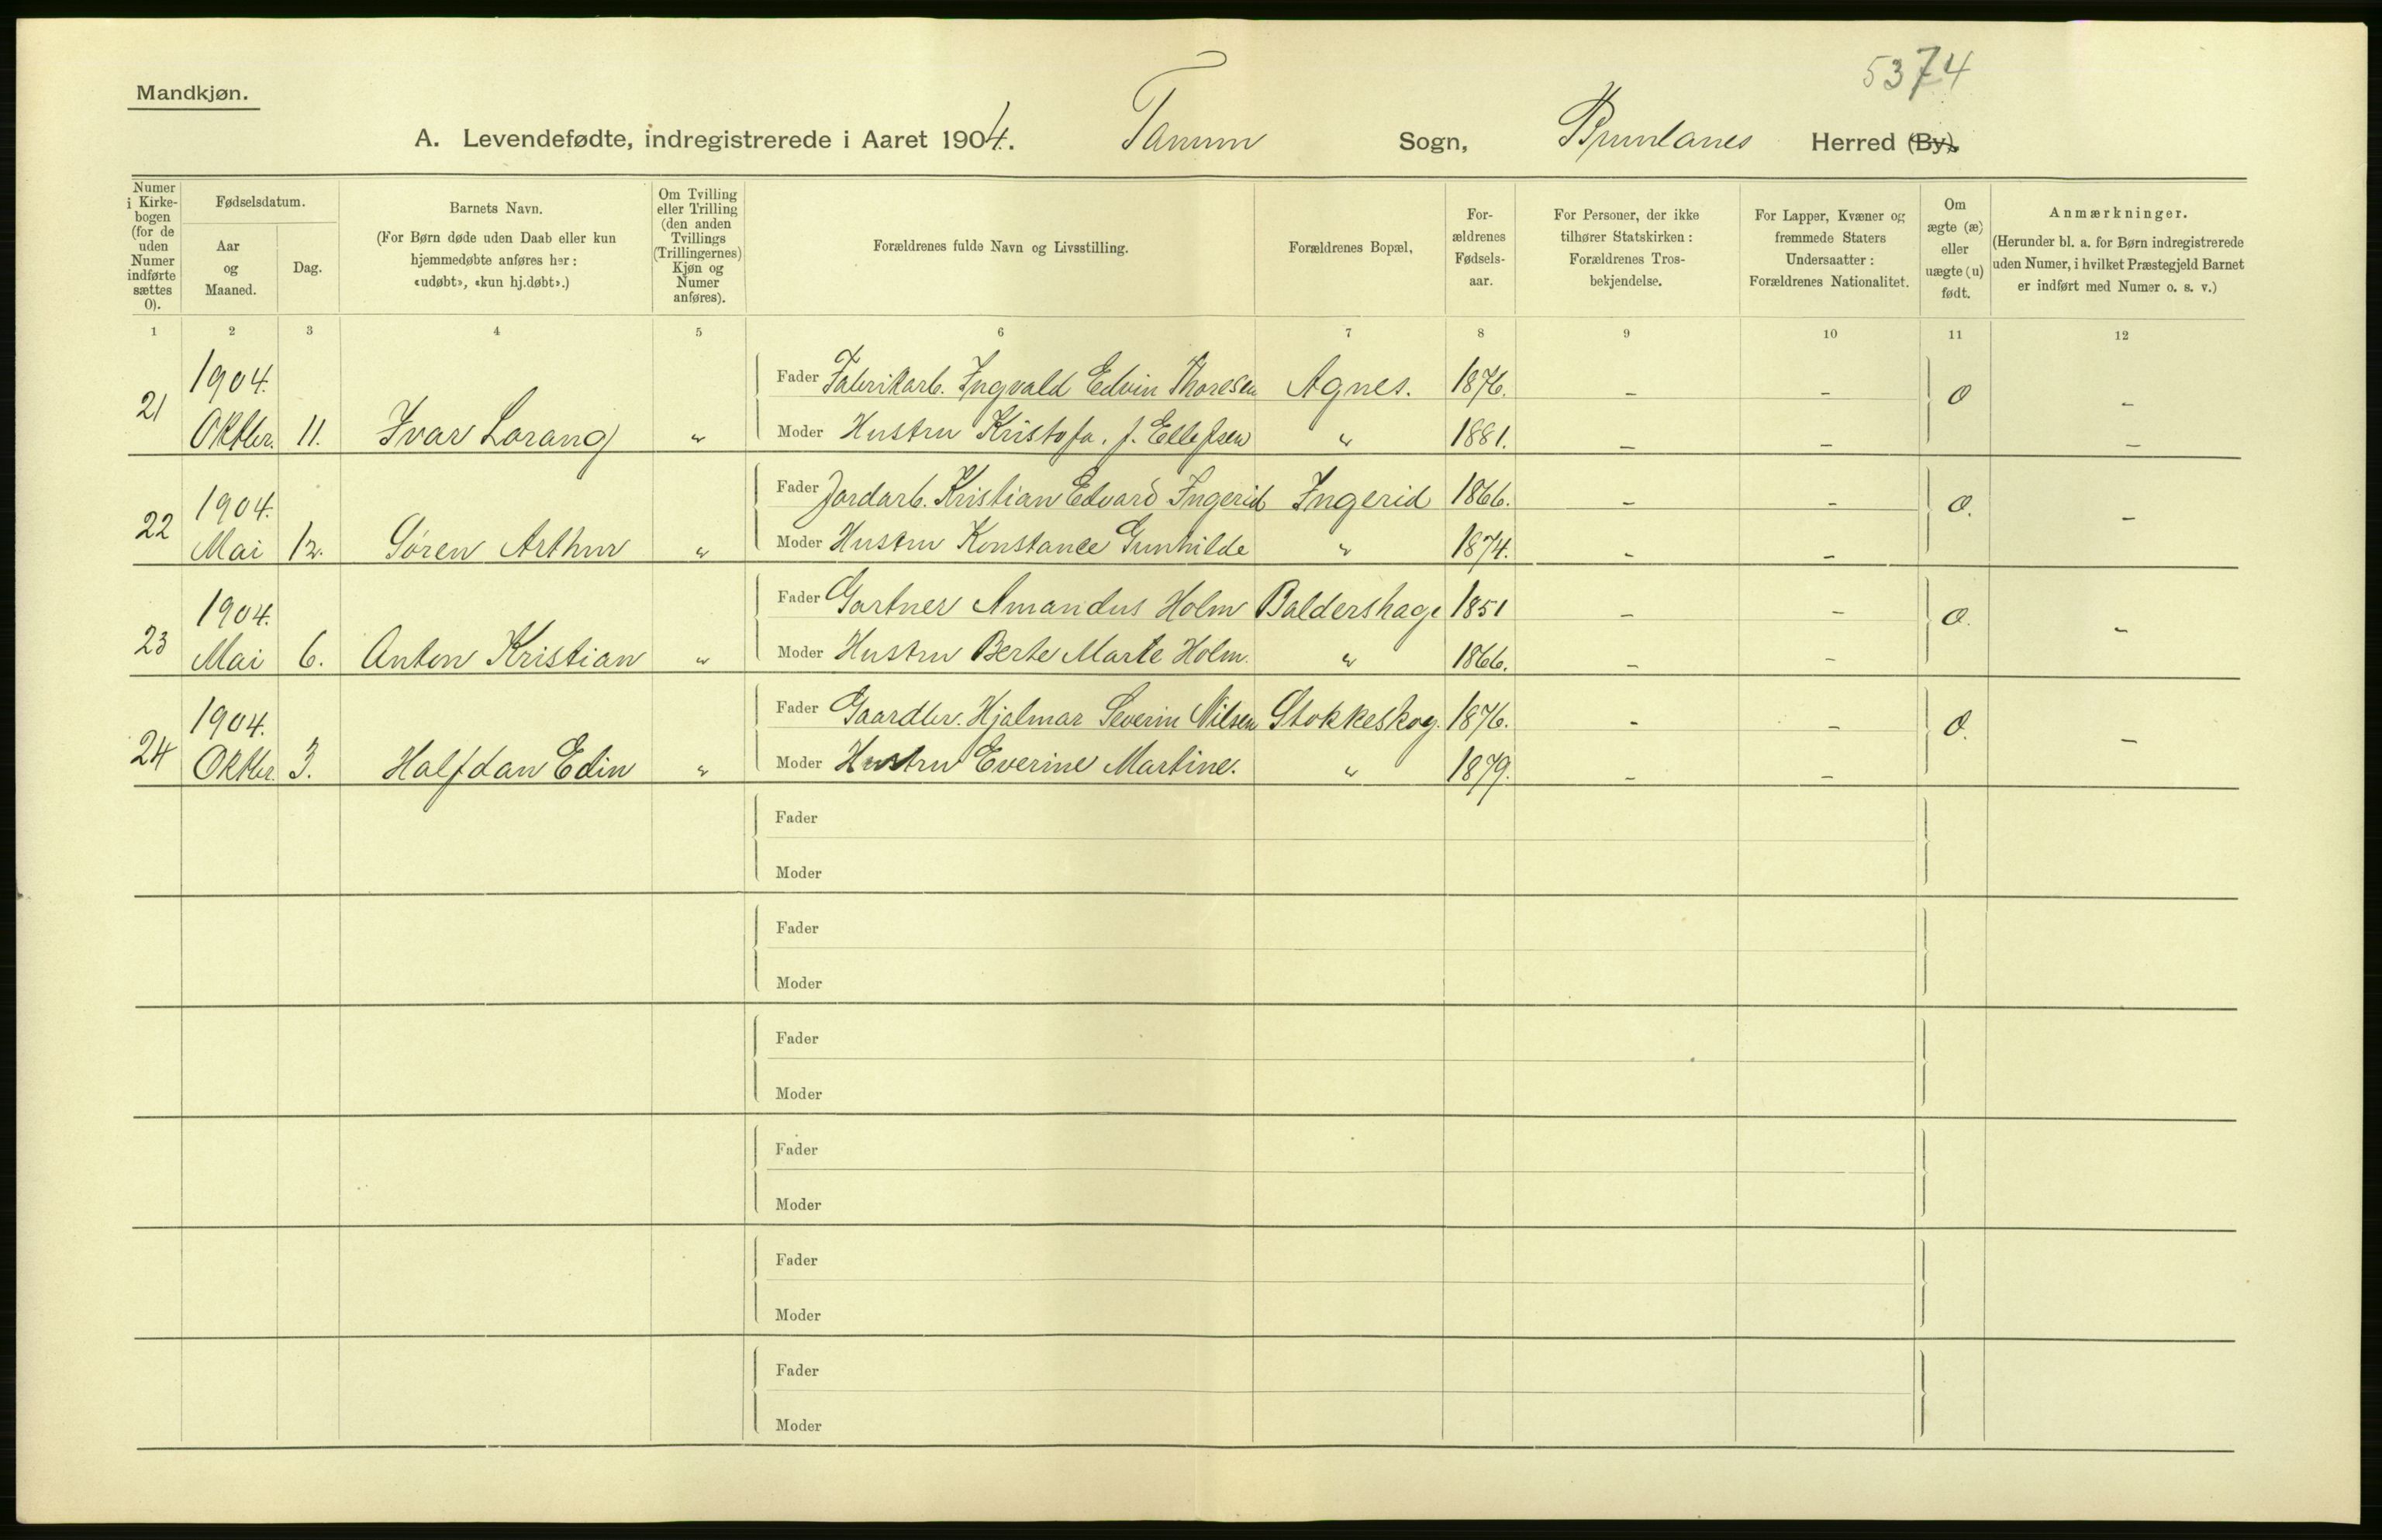 5374
Mandkjøn.
A. Levendefødte, indregistrerede i Aaret 1904. Tanum Sogn, Brunlanes Herred (By).
Numer i Kirkebogen (for de uden Numer indførte sættes 0).
Fødselsdatum.
Aar og Maaned.
Dag.
Barnets Navn.
(For Børn døde uden Daab eller kun hjemmedøbte anføres her: «udøbt», «kun hj.døbt».)
Om Tvilling eller Trilling (den anden Tvillings (Trillingernes) Kjøn og Numer anføres).
Forældrenes fulde Navn og Livsstilling.
Forældrenes Bopæl,
For-ældrenes Fødsels-aar.
For Personer, der ikke tilhører Statskirken: Forældrenes Tros-bekjendelse.
For Lapper, Kvæner og fremmede Staters Undersaatter: Forældrenes Nationalitet.
Om ægte (æ) eller uægte (u) født.
Anmærkninger.
(Herunder bl. a. for Børn indregistrerede uden Numer, i hvilket Præstegjeld Barnet er indført med Numer o. s. v.)
1 2 3 4 5 6 7 8 9 10 11 12
21 1904. Fader Fabrikarb. Ingvald Edvin Thoresen Agnes. 1876. – –
Oktbr. 11. Ivar Lorang " Moder Hustru Kristofa. f. Ellefsen " 1881. – – –
22 1904. Fader Jordarb. Kristian Edvard Ingerid Ingerid 1866. – – –
Mai 12. Søren Arthur " Moder Hustru Konstance Gunhilde " 1874. – –
23 1904. Fader Gartner Amandus Holm Baldershage 1851 – – –
Mai 6. Anton Kristian " Moder Hustru Berte Marte Holm. " 1866. – –
24 1904. Fader Gaardbr. Hjalmar Severin Nilsen Stokkeskog. 1876. – – –
Oktbr. 3. Halfdan Edin " Moder Hustru Everine Martine. " 1879. – –
Fader
Moder
Fader
Moder
Fader
Moder
Fader
Moder
Fader
Moder
Fader
Moder